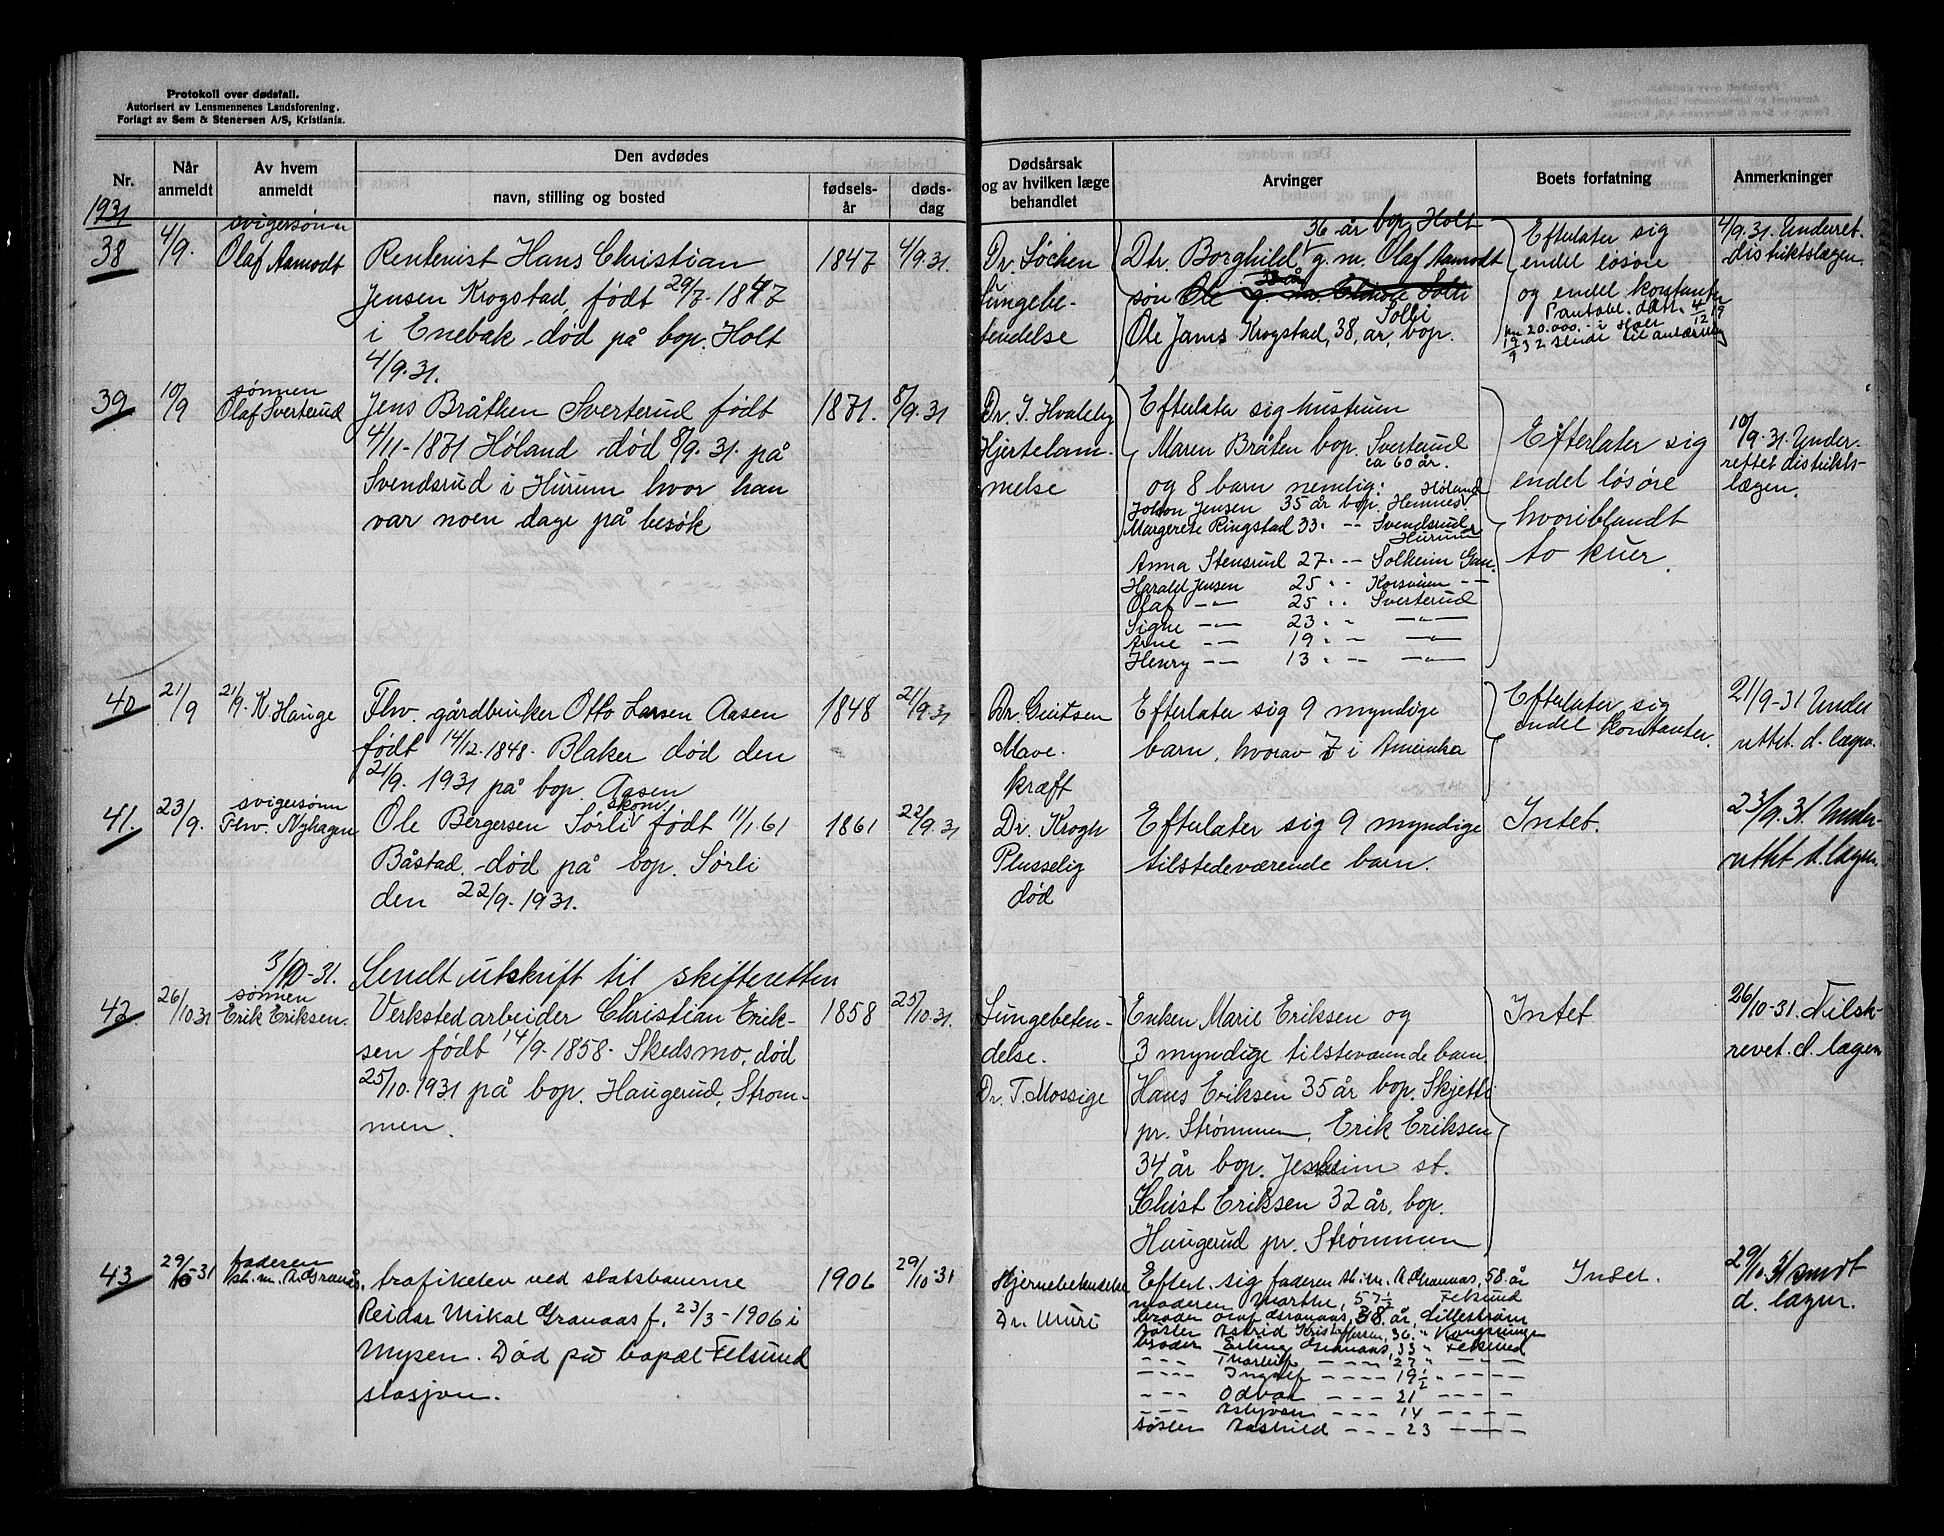 Protokoll over dødsfall.
Autorisert av Lensmennenes Landsforening.
Forlagt av Sem & Stenersen A/S, Kristiania.
Nr.
Når anmeldt
Av hvem anmeldt
Den avdødes
navn, stilling og bosted
fødsels-år
døds-dag
Dødsårsak og av hvilken læge behandlet
Arvinger
Boets forfatning
Anmerkninger
1931
38
4/9.
svigersønn
Olaf Aamodt
Rentenist Hans Christian
Jensen Krogstad, født 29/7-1847
i Enebak død på bop. Holt
4/9.31.
1847
4/9.31.
Dr. Söchen
Lungebe-
tendelse
36 år bop. Holt
Dtr. Borghild g.m. Olaf Aamodt
søn
Solli
Ole Jams Krogstad, 38, år, bop.
Efterlater sig
endel løsøre
og endel kontanter
Pantobl. dat. 4/12 19
kr 20.000.- i Holt
19/9 32 sendt til
4/9.31. Underret.
distriktslægen
39
10/9
sønnen
Olaf Sverterud
Jens Bråthen Sverterud født
4/11-1871 Høland død 8/9.31. på
Svendsrud i Hurum hvor han
var noen dage på besøk
1871.
8/9.31
Dr. I. Hvaleby
Hjertelam-
melse
Efterlater sig hustruen
Maren Bråten bop. Sverterud
ca 60 år.
og 8 barn nemlig: Høland
Johan Jensen 35 år bop. Hemnes
Margerete Ringstad 33. -- Svendsrud
Hurum
Anna Stensrud 27. -- Solheim Gan.
Harald Jensen 25 . - Korsveien --
Olaf -"- 25 . . Sverterud
Signe -"- 23 . - -"-
Arne -- 19 . - -"-
Henry -- 13 . - -"-
Efterlater sig
endel løsøre
hvoriblandt
to kuer.
10/9.31. Under-
rettet distrikts-
lægen.
40
21/9
21/9. K. Hauge
Fhv. gårdbruker Otto Larsen Aasen
født 14/12.1848. Blaker død den
21/9. 1931 på bop. Aasen
1848
21/9.31
Dr. Gentsen
Mave.
kræft
Efterlater sig 9 myndige
barn, hvorav 7 i Amerika
Efterlater sig
endel kontanter.
21/9-31 Under
rettet. d. lægen.
41.
23/9.
svigersønn
Fhv. Nyhagen
skom.
Ole Bergersen Sørli født 11/1.61
Båstad. død på bop. Sørli
den 22/9.1931.
1861
22/9.31
Dr. Krogh
Plusselig
død
Efterlater sig 9 myndige
tilstedeværende barn.
Intet.
23/9.31. Under-
rettet d. lægen.
3/10-31. Sendt utskrift til skifteretten
42.
26/10.31
sønnen
Erik Eriksen.
Verkstedarbeider Christian Erik-
sen født 14/9.1858. Skedsmo, død
25/10.1931 på bop. Haugerud, Strøm-
men.
1858
25/10.31.
Lungebeten-
delse.
Dr. T. Mossige
Enken Marie Eriksen og
3 myndige tilsteværende barn.
Hans Eriksen 35 år bop. Skjetti
pr. Strømmen, Erik Eriksen
34 år bop. Jessheim st.
Christ Eriksen 32 år, bop.
Haugerud pr. Strømmen
Intet
26/10-31. Tilsk-
revet. d. lægen
43
29/10-31
faderen
st.m. A. Granås.
trafikelev ved statsbanerne
Reidar Mikal Granaas f. 23/3-1906 i
Mysen. Død på bopæl Fetsund
stasjon.
1906
29/10-31
Hjernebetendelse
Dr. Muri
Efterl. sig faderen st.m. A. Granaas, 58 år
moderen Marthe, 57 1/2 Fetsund
broder Olaf Granaas, 38 år, Lillestrøm
søster Astrid Kristoffersen, 36 " Kongsvinger
broder Erling Granaas, 33 " Fetsund
--- Thorleif --- 27 " ---
--- Ingolf --- 19 1/2 " ---
--- Odvar --- 21 ---
--- Asbjørn --- 14 ---
søster Aashild --- 23 ---
Intet.
29/10.31 sendt
d. lægen.